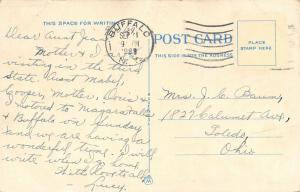 THIS SPACE FOR WRITING
POST CARD
PLACE
STAMP
HERE
THIS SIDE IS FOR THE ADDRESS
BUFFALO
SEP 1
9 PM
N.Y.
Dear Aunt Jean
Mother & I
visiting in the third
State. Aunt Mabel,
Mother, Doris &
I motored to Niagara Falls
& Buffalo on Sunday
and we are having a
wonderful time. I will
write when I'm home.
With love to all
Lucy.
Mrs. J. C. Baum,
1827 Calumet Ave.,
Toledo,
Ohio